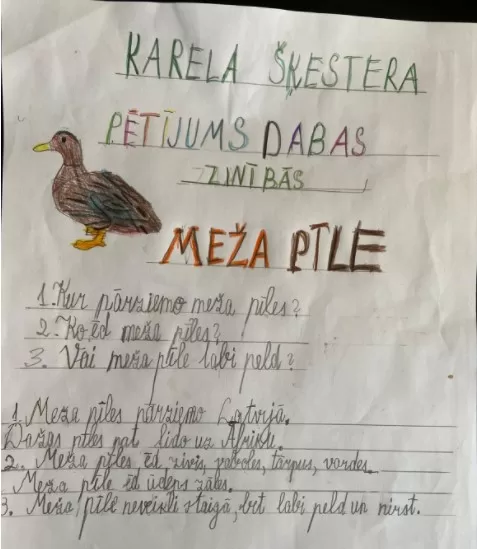 KARELA ŠĶESTERA
PĒTĪJUMS DABAS
ZINĪBĀS
MEŽA PĪLE
1. Kur pārziemo meža pīles?
2. Ko ēd meža pīles?
3. Vai meža pīle labi peld?
1. Meža pīles pārziemo Latvijā.
Dažas pīles pat lido uz Āfriku.
2. Meža pīles ēd zivis, vaboles, tārpus, vardes.
Meža pīle ēd ūdens zāles.
3. Meža pīle neveikli staigā, bet labi peld un nirst.